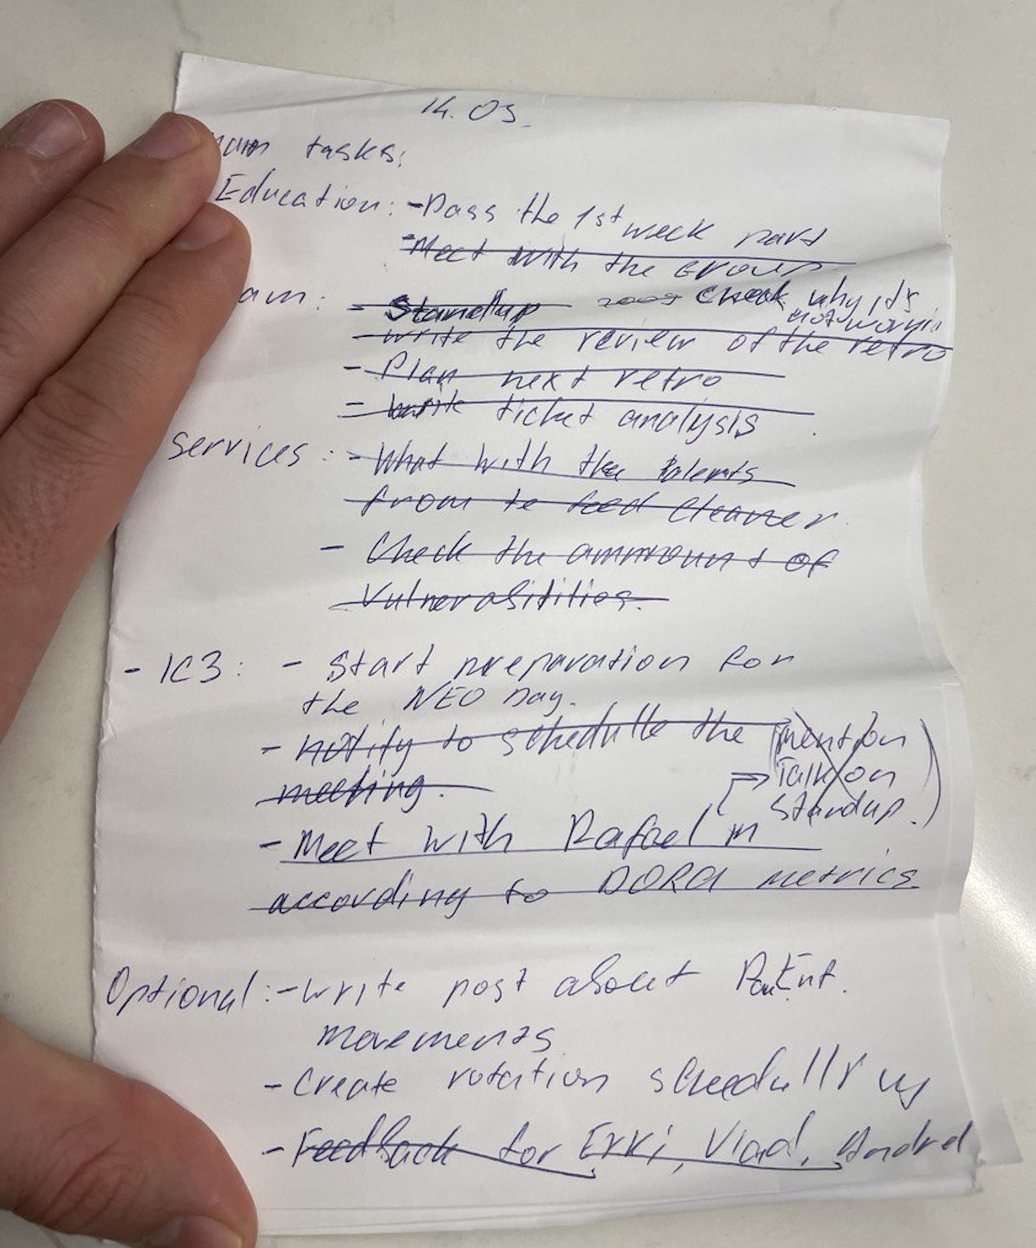 14.05.
tasks:
Education: - Pass the 1st week part
- Meet with the Group.
am: - Standup check why it's
not workin
- write the review of the retro
- Plan next retro
- write ticket analysis
services: - What with the talents
from te feed cleaner
- Check the ammount of
Vulnerabilities.
- IC3: - Start preparation for
the NEO Day.
- notify to schedulle the (mention
meeting. Talk on
standup.)
- Meet with Rafael in
according to DORA metrics
Optional: - write post about
movements
- Create rotation
- Feedback for Erki, Vlad, Andrei